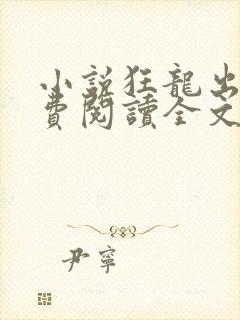 小説狂龍出
費閱讀全文
尹寧